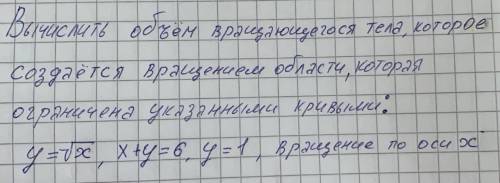 Вычислить объём вращающегося тела, которое
создаётся вращением области, которая
ограничена указанными кривыми:
y=√x, x+y=6, y=1, вращение по оси x